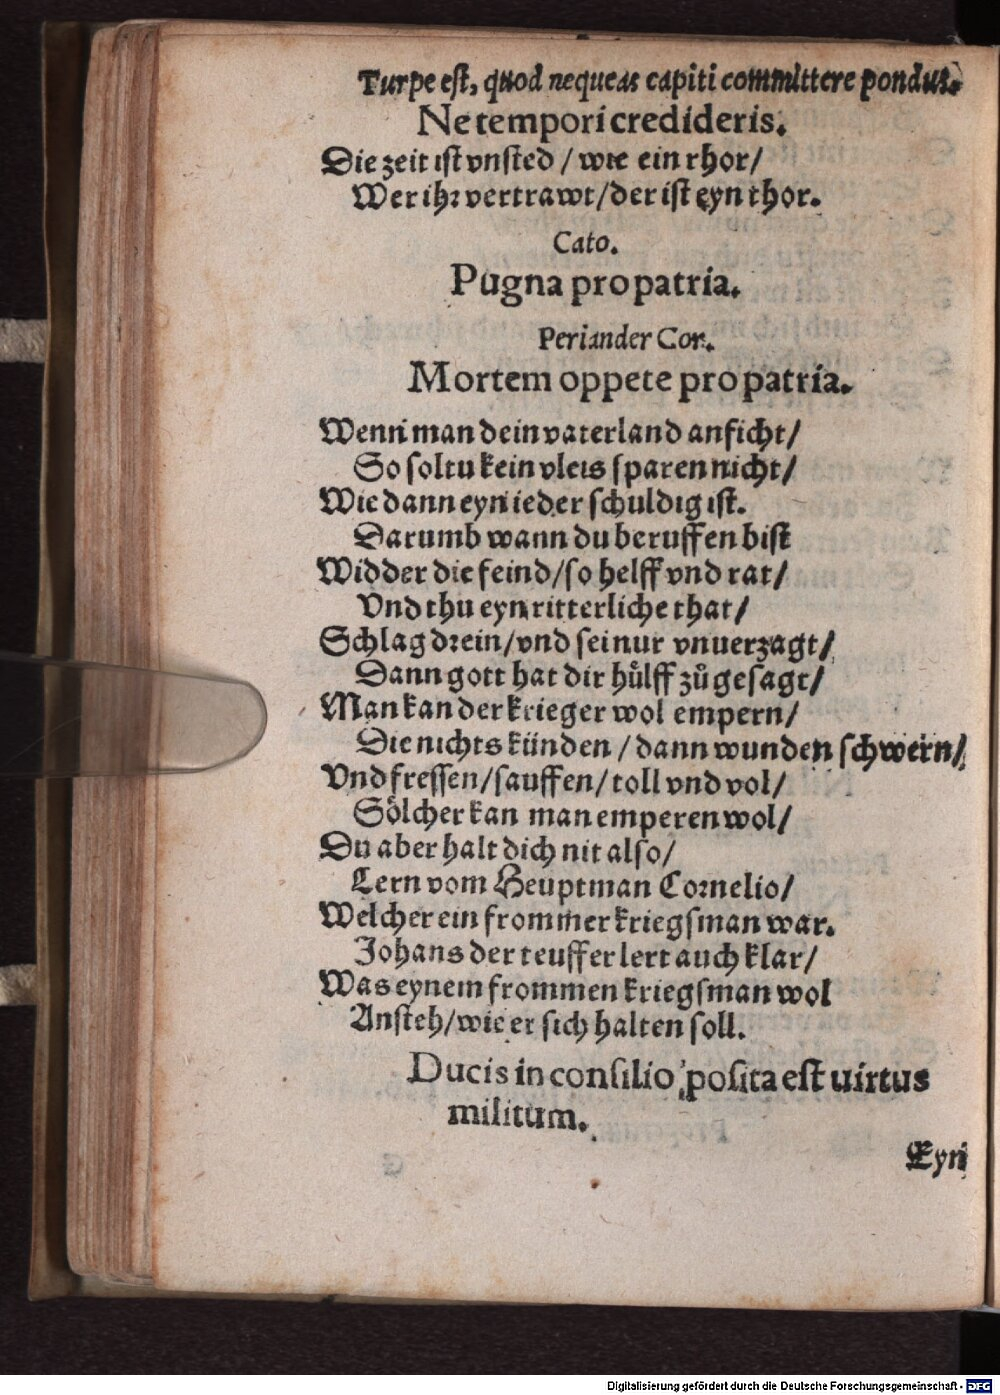 Turpe est, quod nequeas capiti committere pondus.
Ne tempori credideris.
Die zeit ist vnsted / wie ein rhor /
Wer ihr vertrawt / der ist eyn thor.
Cato.
Pugna pro patria.
Periander Cor.
Mortem oppete pro patria.
Wenn man dein vaterland anficht /
So soltu kein vleis sparen nicht /
Wie dann eyn ieder schuldig ist.
Darumb wann du beruffen bist
Widder die feind / so helff vnd rat /
Vnd thu eyn ritterliche that /
Schlag drein / vnd sei nur vnuerzagt /
Dann gott hat dir hůlff zů gesagt /
Man kan der krieger wol empern /
Die nichts künden / dann wunden schwern /
Vnd fressen / sauffen / toll vnd vol /
Sölcher kan man emperen wol /
Du aber halt dich nit also /
Lern vom Heuptman Cornelio /
Welcher ein frommer kriegsman war.
Johans der teuffer lert auch klar /
Was eynem frommen kriegsman wol
Ansteh / wie er sich halten soll.
Ducis in consilio posita est uirtus
militum.
Eyn
Digitalisierung gefördert durch die Deutsche Forschungsgemeinschaft - DFG